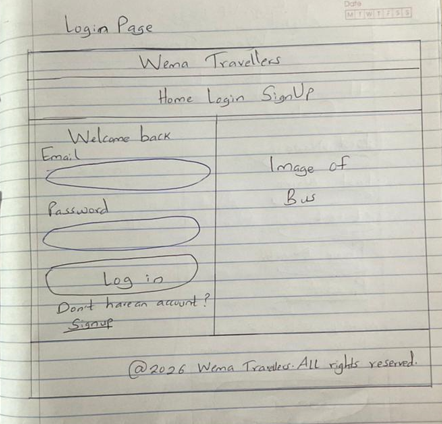 Date
M T W T F S S
Login Page
Wema Travellers
Home Login SignUp
Welcome back
Email
Password
Log in
Don't have an account?
Signup
Image of
Bus
@2026 Wema Travellers. All rights reserved.